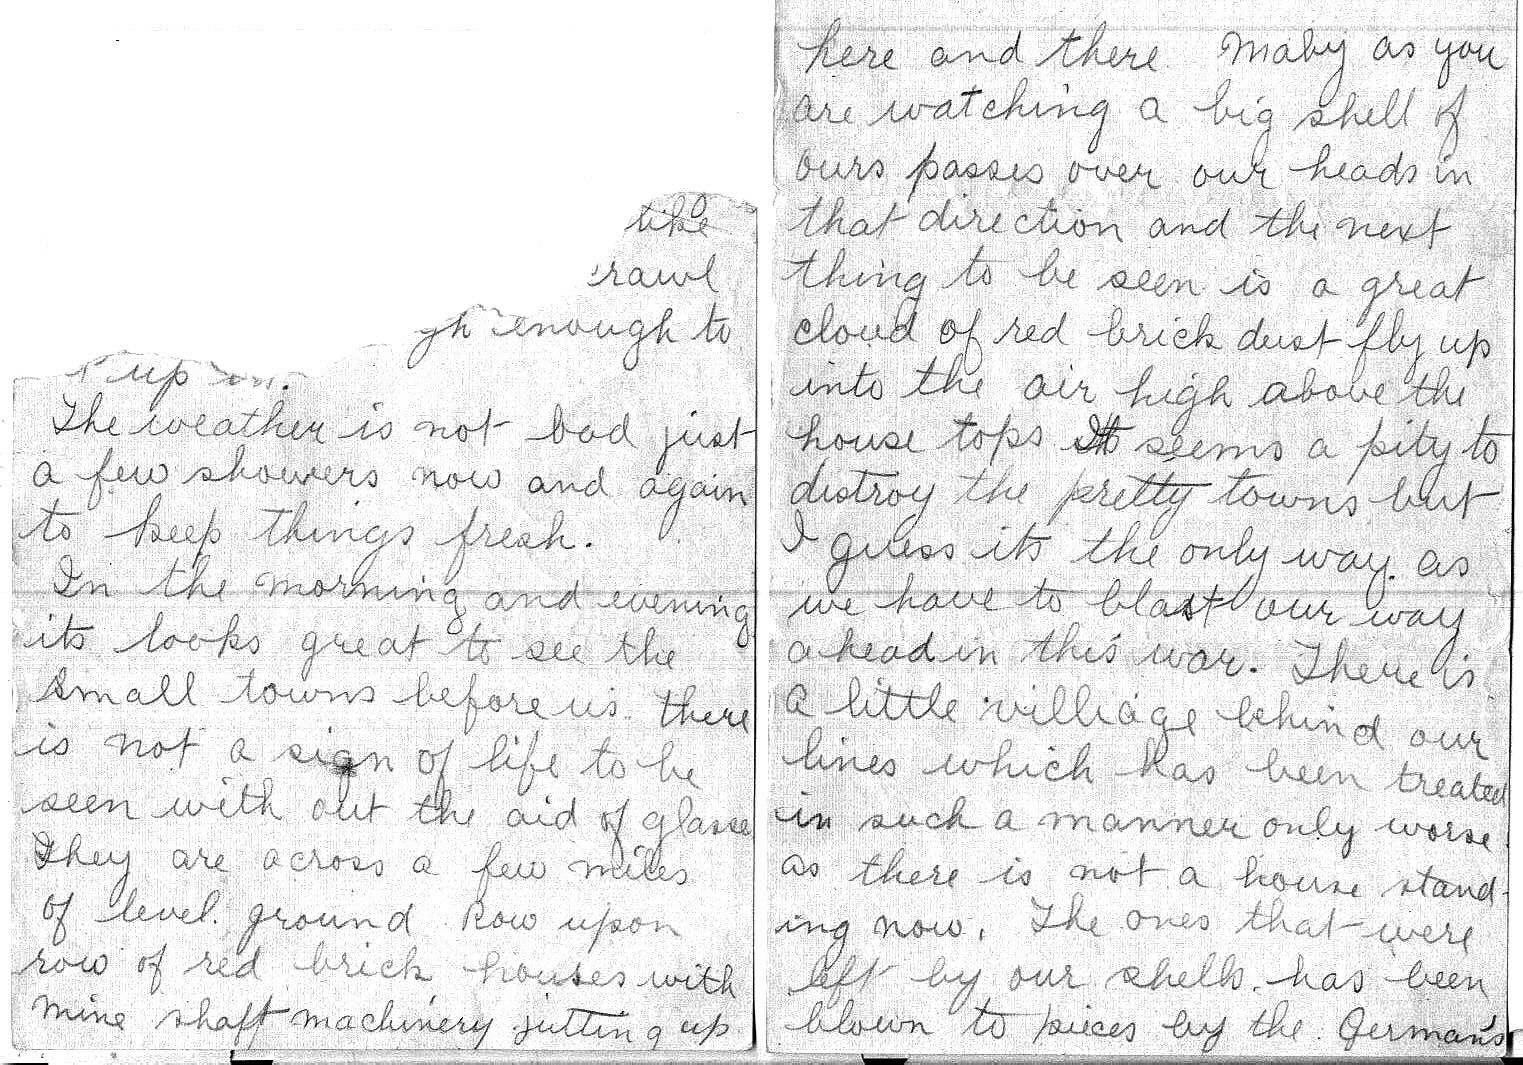 like
rawl
gh enough to
up
The weather is not bad just
a few showers now and again
to keep things fresh.
In the morning and evening
its looks great to see the
small towns before us. there
is not a sign of life to be
seen with out the aid of glasse
They are across a few miles
of level. ground Row upon
row of red brick houses with
mine shaft machinery jutting up
here and there. Maby as you
are watching a big shell of
ours passes over our heads in
that direction and the next
thing to be seen is a great
cloud of red brick dust fly up
into the air high above the
house tops It seems a pity to
distroy the pretty towns but
I guess its the only way. as
we have to blast our way
ahead in this war. There is
a little villiage behind our
lines which has been treated
in such a manner only worse.
as there is not a house stand-
ing now. The ones that were
left by our shells. has been
blown to pieces by the German's